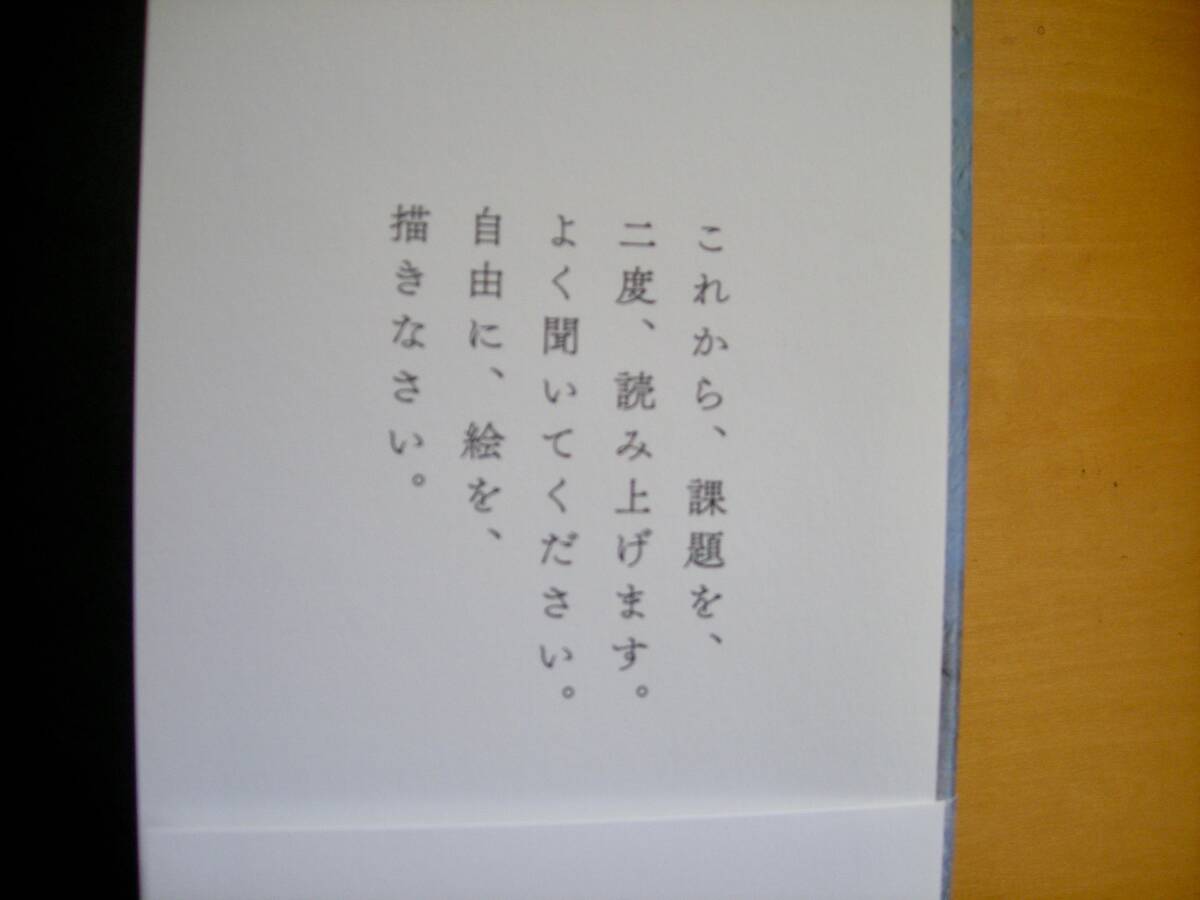 これから、課題を、
二度、読み上げます。
よく聞いてください。
自由に、絵を、
描きなさい。